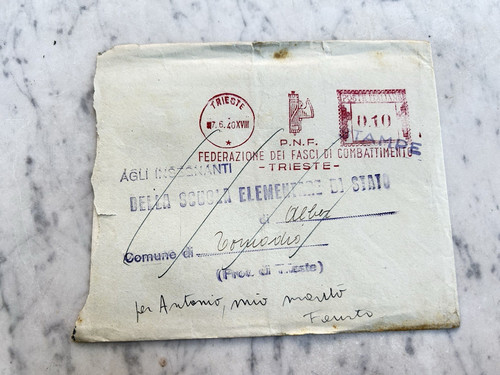 TRIESTE
17.6.40XVIII
0.10
P.N.F.
STAMPE
FEDERAZIONE DEI FASCI DI COMBATTIMENTO
-TRIESTE-
AGLI INSEGNANTI
DELLA SCUOLA ELEMENTARE DI STATO
di
Comune di Tomadio
(Prov. di Trieste)
per Antonio, mio